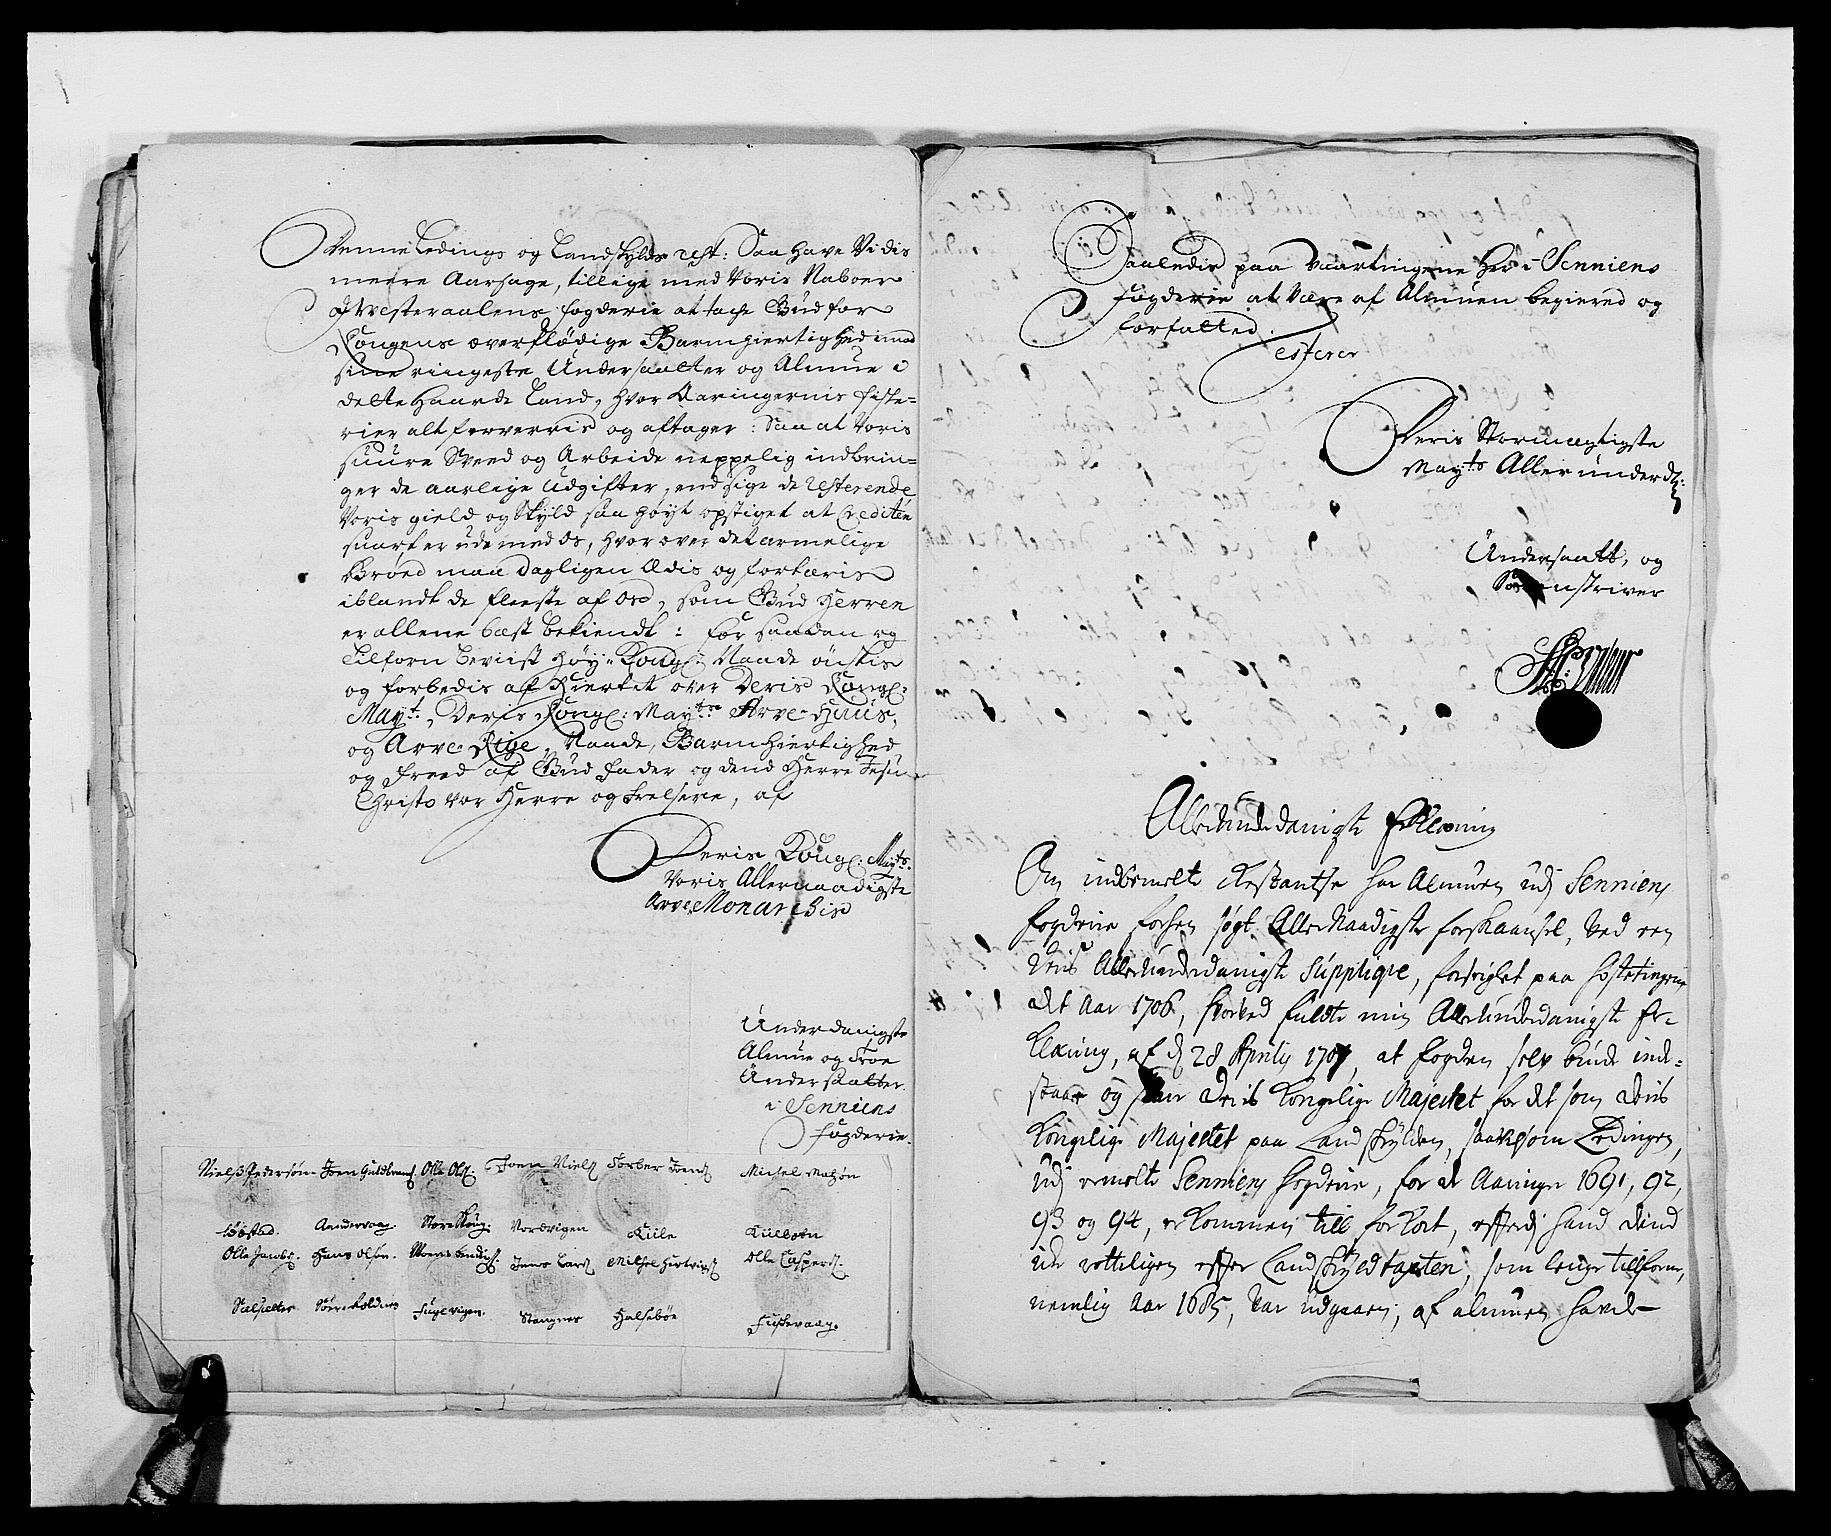 Denne Ledings og Landskylds rest: Saa have Vi dis
meere Aarsage, tillige med Voris Naboer
I Westeraalens fogderie at tage Gud for
Kongens overflødige Barmhiertighed imod
sine ringeste Undersaatter og Almue i
dette Haarde Land, hvor Naringernis fiske-
rier alt forverris og aftager: Saa at Voris
suure Sveed og Arbeide neppelig indbrin-
ger de aarlige Udgifter, end sige de resterende
Voris gield og Skyld saa høyt opstiget at Crediten
snart er ude med os, hvor over det armelige
Brød maa dagligen Ædis og fortæris
iblandt de fleeste af os, som Gud Herren
er allene best bekiendt: for saadan og
tilforn beviist høy Kongl: Naade ønskis
og forbedis af Hiertet over Deris Kongl:
Mayt. Deris Kongl: Mayts Arve-Huus,
og Arve Rige, Naade, Barmhiertighed
og Freed af Gud Fader og dend Herre Jesu
Christo vor Herre og Frelsere, af
Deris Kongl: Mayts
Voris Allernaadigste
Arve Monarchis
Underdanigste
Almue og Troe
Undersaatter
i Senniens
fogderie.
Niels Pedersøn Joen Guldbrands: Olle Ols: Joen Niels Torber Joens Michel Matsøn
Bøstad. Aandervaag. StoreSkoug. Nordvigen Kiile
Olle Jacobs. Hans Olsøn. Moens Bendigs. Jens Lars Michel Hertvigs Olle Caspers.
Fuglevigen. Stangnes Halsebøe Fiskevaag.
Saaledis paa Vaartingene her i Senniens
fogderie at Være af Almuen begiered og
forfatted.
Testerer
Deris Stormegtigste
Mayts Allerunderd:
Undersaatt, og
Sorenskriver
Allerunderdanigste Erklæring
Om indbemelte Restantse har Almuen udj Senniens
fogderie forhen søgt Allernaadigste forskaansel, Ved een
deris Allerunderdanigste Supplique, forseiglet paa høstetingene
det Aar 1706, hvorved fuldte min Allerunderdanigste Er-
klæring, af d 28 Aprilis 1707, at fogden selv burde ind-
staae og svar Deris Kongelige Majestet for det som deris
Kongelige Majestet paa Landskylden, saavelsom Ledingen,
udj bemelte Senniens fogderie, for de Aaringer 1691, 92,
93 og 94, er kommen till forkort, efterdj hand dend
ike rettiligen efter Landskyldtaxten, som lenge tillforne,
nemlig Aar 1685, var udgaaen, af almuen havde